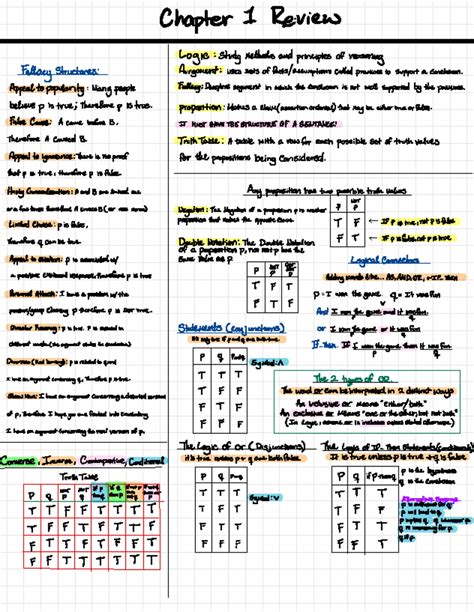 Chapter 1 Review
Fallacy Structures:
Appeal to popularity: Many people
believe p is true; Therefore p is true.
False Cause: A came before B.
Therefore A Caused B.
Appeal to Ignorance: There is no proof
that p is true, therefore p is false
Hasty Generalization: A and B are linked one
or a few times therefore A causes B (or vice versa)
Limited Choice: p is false,
Therefore q can be true.
Appeal to emotion: p is associated w/
a positive emotional response, therefore p is true
Personal Attack: I have a problem w/ the
person/group claiming p therefore, p is not true.
Circular Reasoning: p is true. p is restated in
different words
Diversion (Red Herring): p is related to q and
I have an argument concerning q. Therefore p is true
Straw Man: I have an argument concerning a distorted version
of p, therefore I hope you are fooled into concluding
I have an argument concerning the real version of p.
Logic: Study methods and principles of reasoning
Argument: uses sets of facts/assumptions called premises to support a conclusion.
Fallacy: Deceptive argument in which the conclusion is not well supported by the premises.
proposition: Makes a claim (assertion or denial) that may be either true or false.
IT MUST HAVE THE STRUCTURE OF A SENTENCE!
Truth Table: A table with a row for each possible set of truth values
for the propositions being considered.
Any proposition has two possible truth values
Negation: The Negation of a proposition p is another
proposition that makes the opposite claim.
p not p
T F ← If p is true, not p is false
F T ← If p is false, not p is true
Double Negation: The Double Negation
of a Proposition p, not not p has the
Same Value as p.
T F T
F T F
Logical Connectors
Adding words like... AND, OR, or IF.. then
p = I won the game q = It was fun
And I won the game and It was fun
or I won the game or It was fun
If.. Then If I won the game, then It was fun
Statements (conjunctions)
It's only true if p and q are both true
P q P and q
Symbol: ∧
T T T
T F F
F T F
F F F
The 2 types of OR.
The word or can be interpreted in 2 distinct ways
An inclusive or Means "either/both"
An exclusive or Means "one or the other, but not both"
(In Logic, assume or is inclusive unless stated otherwise)
The Logic of or (Disjunctions)
it is true unless p and q are both false.
P q P or q
Symbol: V
T T T
T F T
F T T
F F F
The Logic of IF.. Then Statements (conditional)
It is true unless p is true + q is false
p q if p then q
T T T
T F F
F T T
F F T
p is the hypothesis
q is the conclusion
p is sufficient for q
p will lead to q
p implies q
q is necessary for p
q if p
q whenever p
Converse, Inverse, Contrapositive, Conditional
Truth Table
P q not P not q
T T F F T T T T
T F F T F T T F
F T T F T F F T
F F T T T T T T